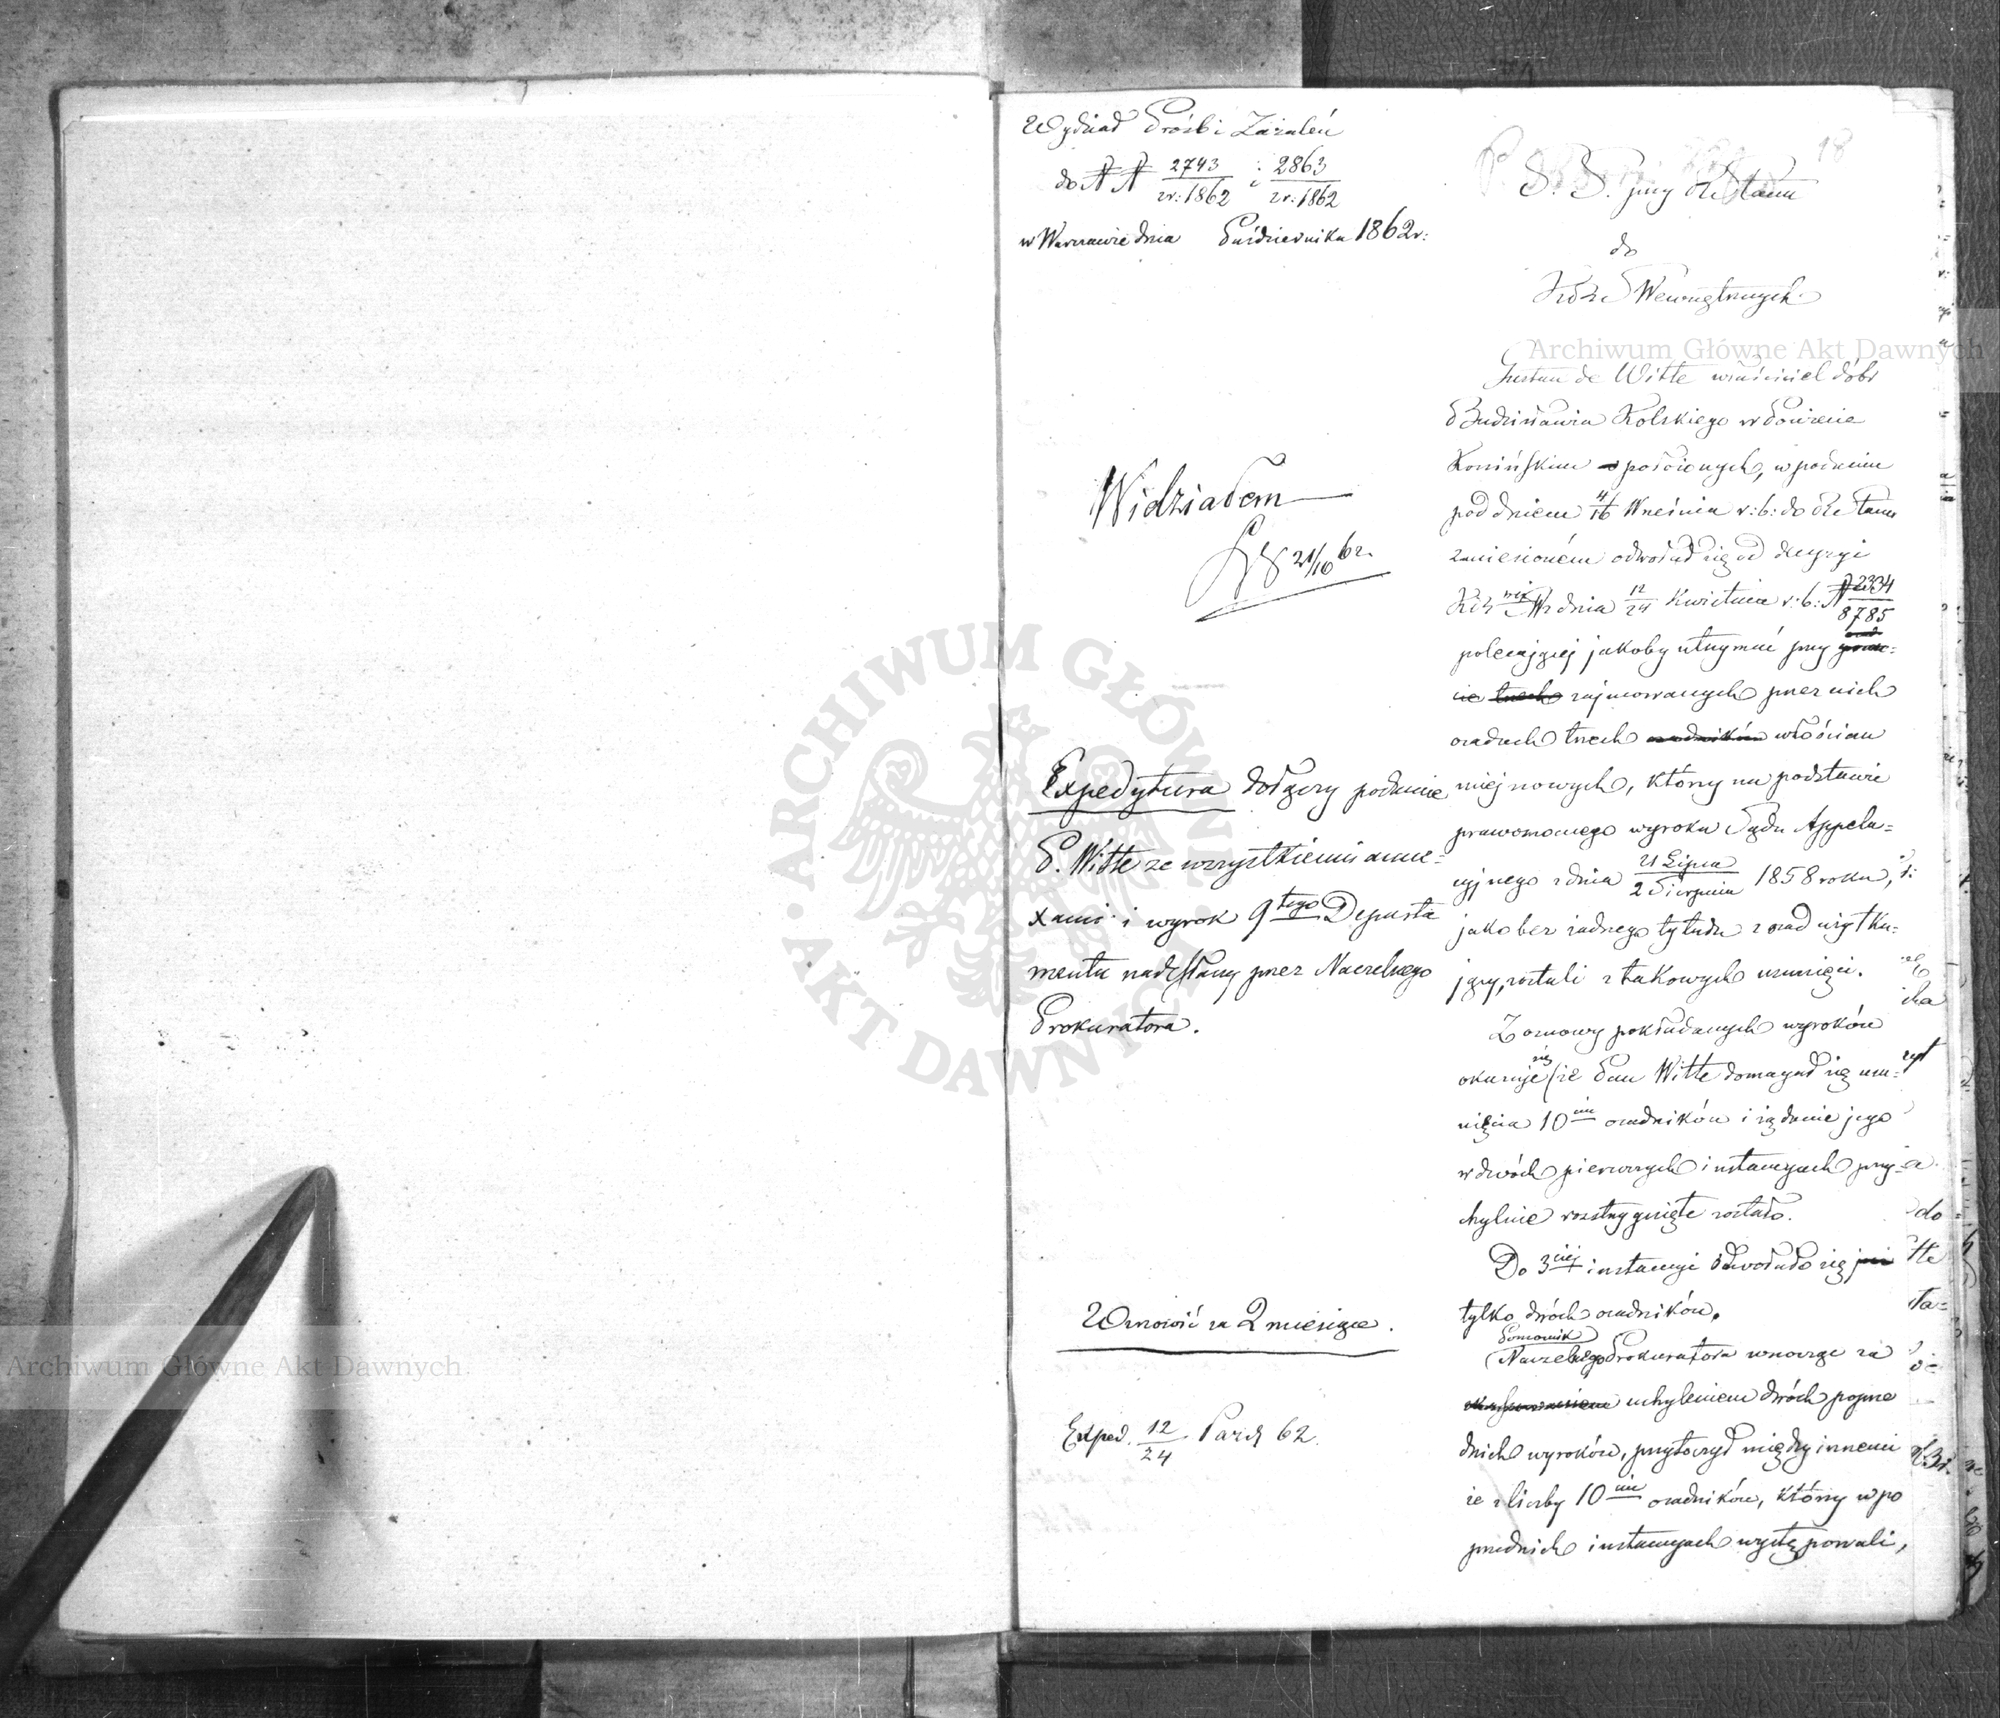 Wydział Próśb i Zażaleń
do NN 2743/z r: 1862 i 2863/z r: 1862
w Warszawie dnia Października 1862 r:
Widziałem
21/10 62.
Expedytura dołączy podanie
P. Witte ze wszystkiemi anne=
xami i wyrok 9tego Departa
mentu nadesłany przez Naczelnego
Prokuratora.
Wznowić za 2 miesiące.
Exped. 12/24 Paźd 62.
18
S. S. przy Rze Stanu
do
Wewnętrznych
Gustaw de Witte właściciel dóbr
Budzisławia Kolskiego w Powiecie
Konińskim położonych, w podaniu
pod dniem 4/16 Września r: b: do Rze Stanu
zaniesioném odwołał się od decyzyi
z dnia 12/24 Kwietnia r: b: N 2334/8785
polecającej jakoby utrzymać przy
zajmowanych przez nich
osadach trzech włościan
miejscowych, którzy na podstawie
prawomocnego wyroku Sądu Appela=
cyjnego z dnia 21 Lipca/2 Sierpnia 1858 roku,
jako bez żadnego tytułu z osad użytku=
jący, zostali z takowych usunięci.
Z osnowy pokładanych wyroków
okazuje się że Pan Witte domagał się usu=
nięcia 10iu osadników i żądanie jego
w dwóch pierwszych instancyach przy=
chylnie rozstrzygnięte zostało.
Do 3ciej instancyi odwołało się
tylko dwóch osadników.
Pomocnik
Naczelnego Prokuratora wnosząc za
uchyleniem dwóch poprze
dnich wyroków, przytoczył między innemi
że z liczby 10iu osadników, którzy w po
przednich instancyach występowali,
Archiwum Główne Akt Dawnych
ARCHIWUM GŁÓWNE AKT DAWNYCH
Archiwum Główne Akt Dawnych